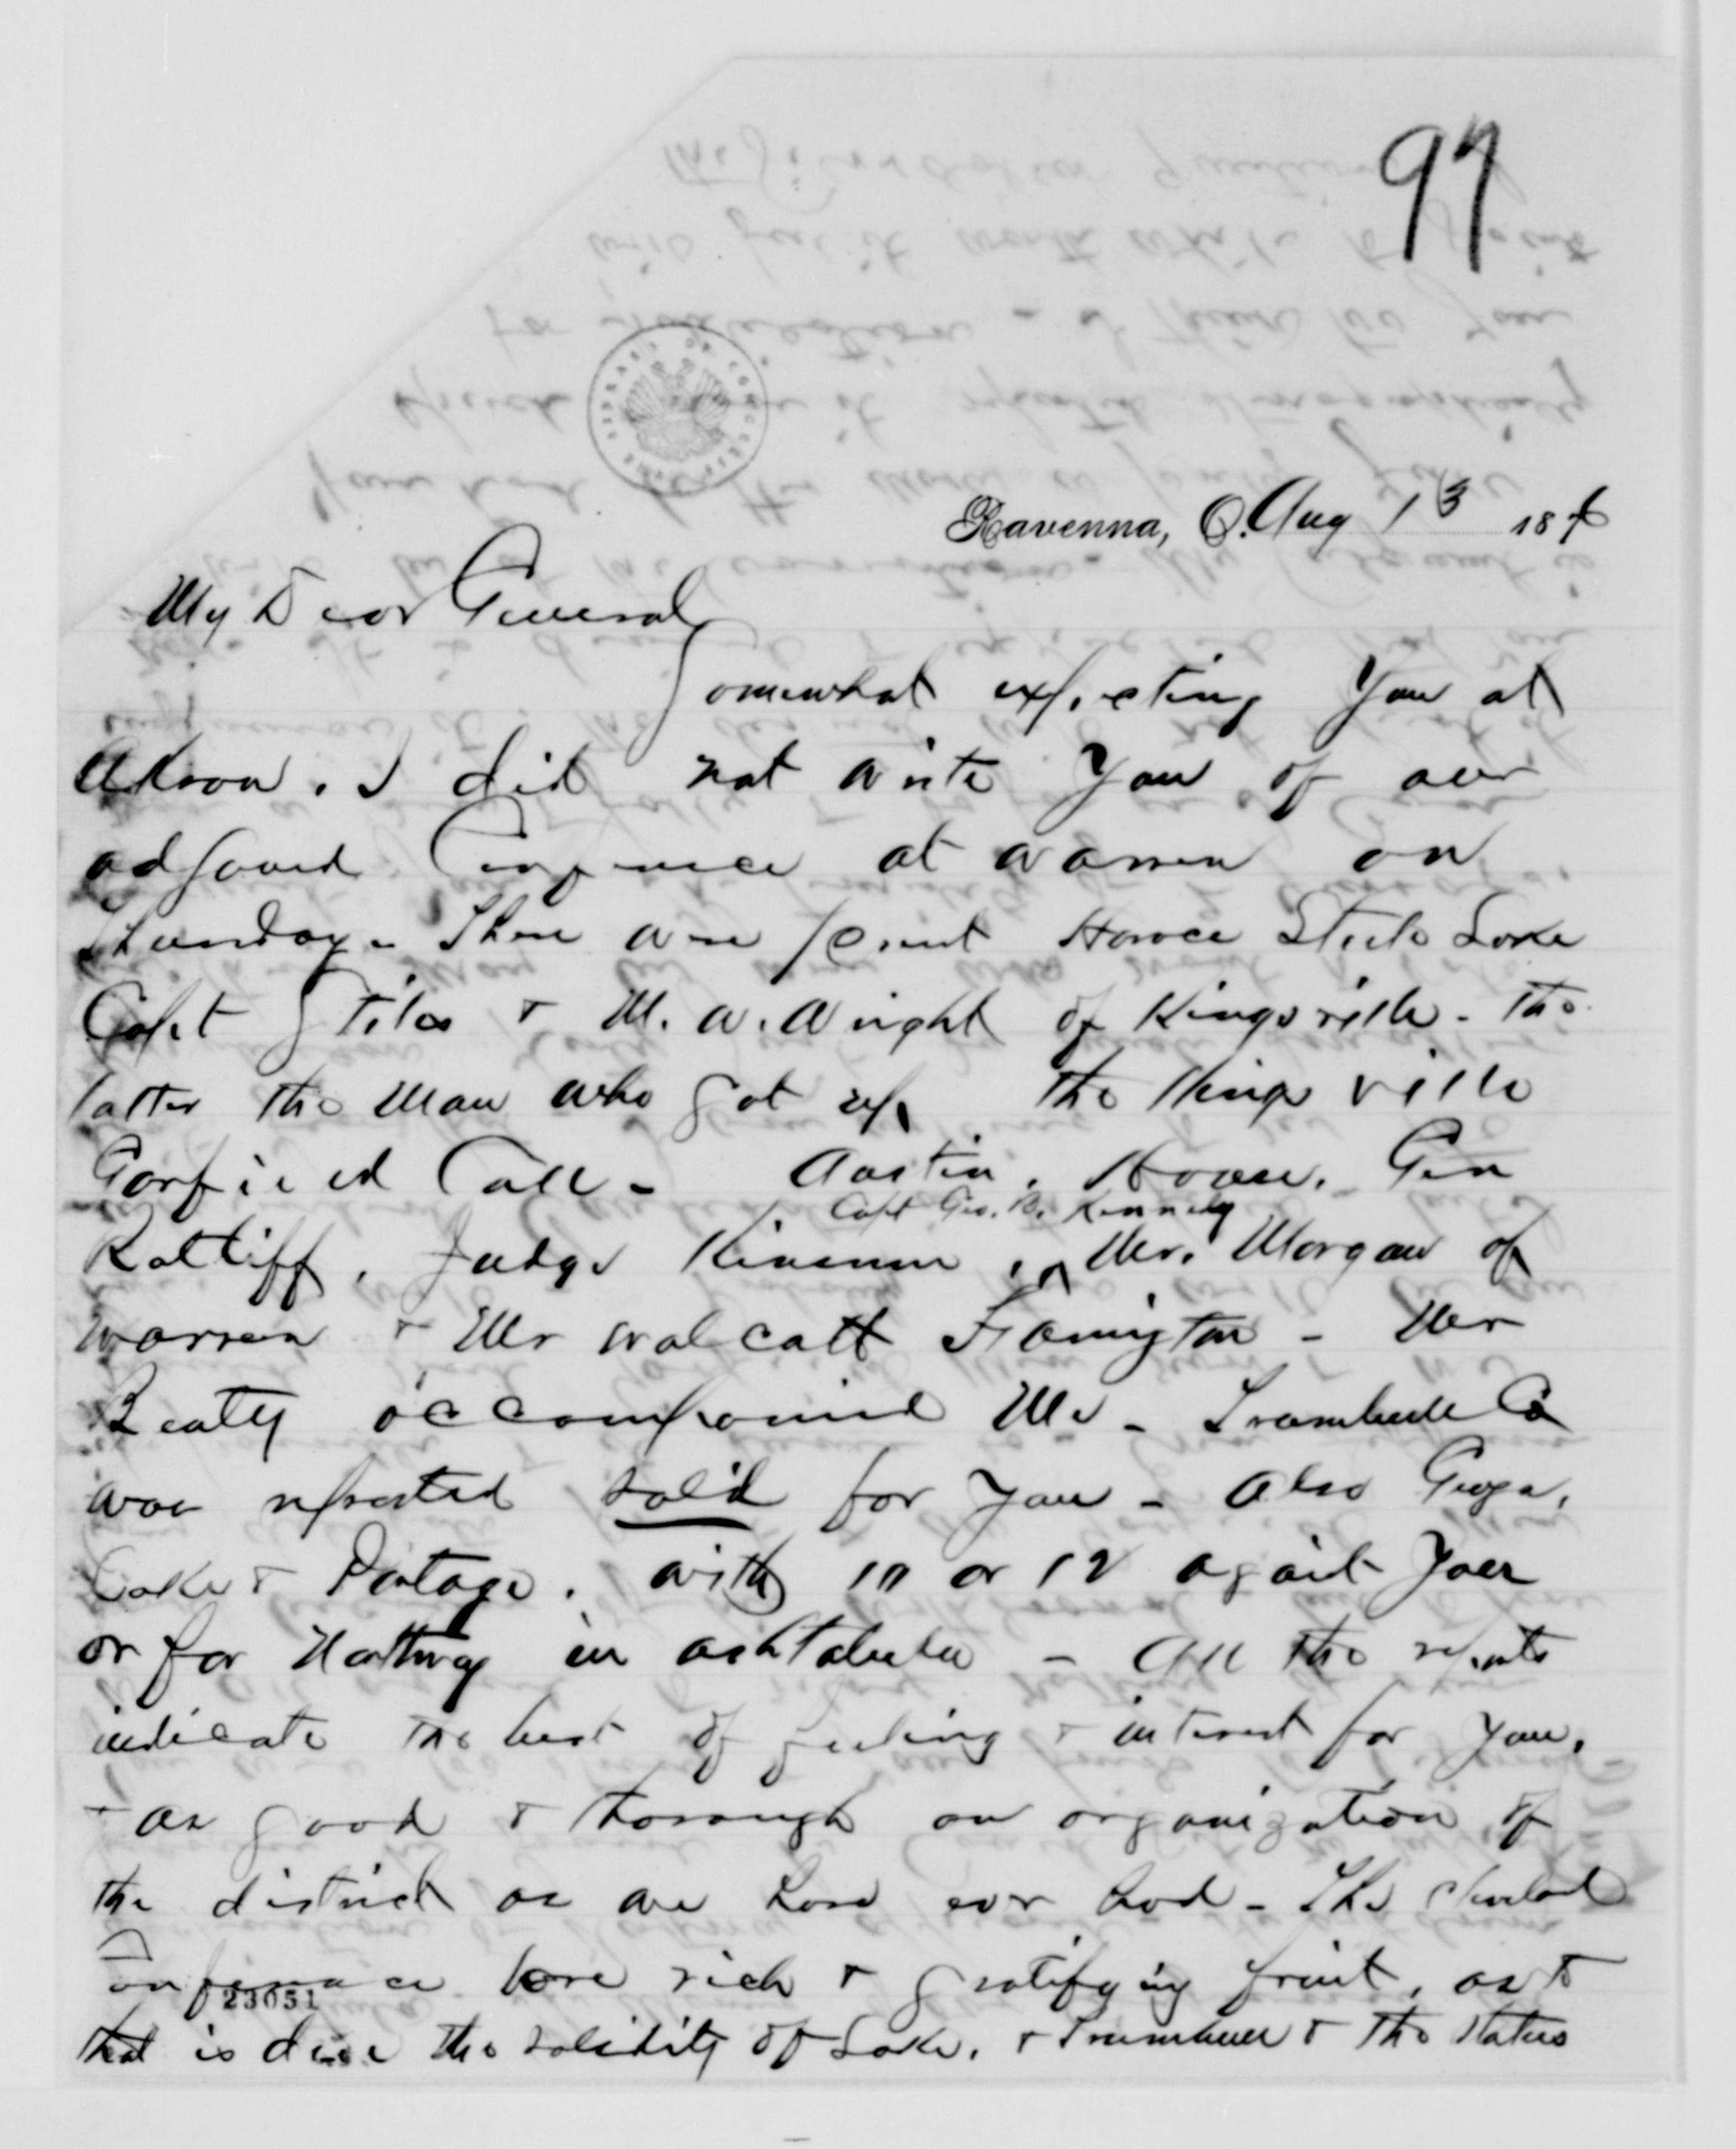 97
Ravenna, O. Aug 13 1876
My Dear General
Somewhat expecting you at
Akron. I did not write you of our
adjourned Conference at Warren on
Thursday. There were present Horace Steele Lake
Capt Stiles & M. W. Wright of Kingsville - the
latter the man who got up the Kingsville
Garfield Call - Austin, Howe, Gen
Capt Geo. B. Kennedy
Ratliff, Judge Kinsman, Mr. Morgan of
Warren & Mr Wolcott Farmington - Mr
Beaty accompanied me - Trumbull Co
was reported solid for you - also Geauga,
Lake & Portage. with 10 or 12 against you
or for Northway in Ashtabula - All the reports
indicate the best of feeling & interest for you.
& as good & thorough an organization of
the district as we have ever had - The Cleveland
Conference bore rich & gratifying fruit, as to
23051
that is due the solidity of Lake, & Trumbull & the status